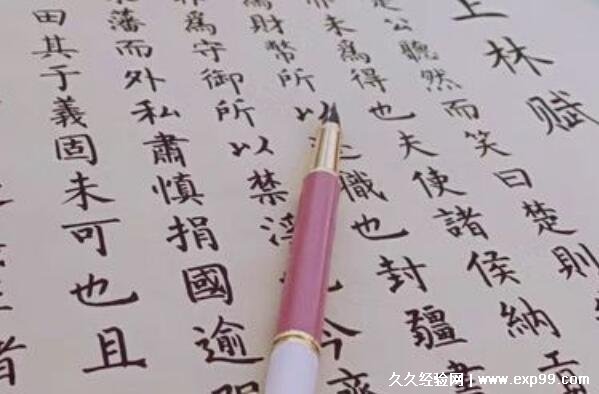 上林赋
是公聽然而笑曰楚則
未為得也夫使諸侯納貢
為財幣所以職也封疆
為守御所以禁淫也今齊
藩而外私肅慎捐國逾
田其于義固未可也且
者
久久经验网 | www.exp99.com